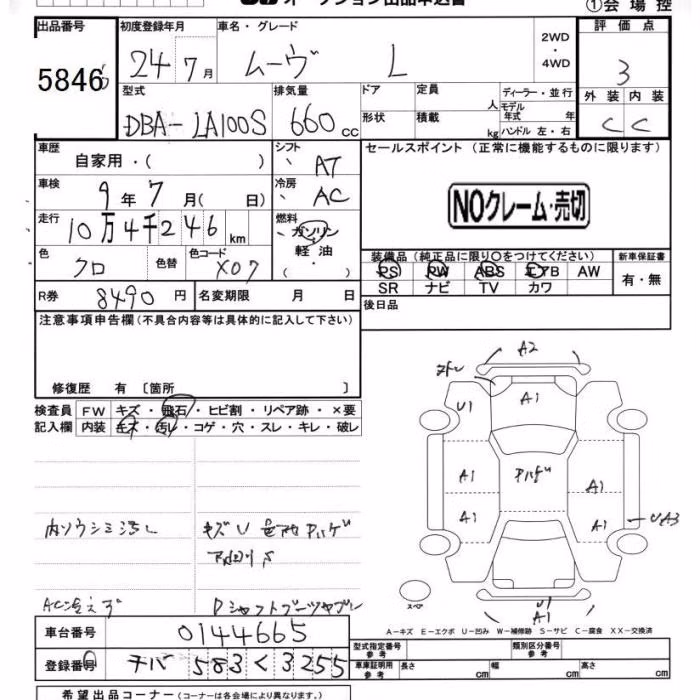 オークション出品申込書
①会場控
出品番号 初度登録年月 車名・グレード 2WD・4WD 評価点
5846 24 7月 ムーヴ L 3
型式 排気量 ドア 定員 人 ディーラー・並行 外装 内装
DBA-LA100S 660cc 形状 積載 kg モデル年式 年 ハンドル 左・右 C C
車歴 自家用・( ) シフト AT セールスポイント (正常に機能するものに限ります)
車検 9年7月( 日) 冷房 AC NOクレーム・売切
走行 10万4千246km 燃料 ガソリン 軽油 ( ・ )
色 クロ 色替 色コード X07 装備品 (純正品に限り○をつけてください) 新車保証書
PS PW ABS エアB AW 有・無
SR ナビ TV カワ
R券 8490円 名変期限 月 日 後日品
注意事項申告欄 (不具合内容等は具体的に記入して下さい)
修復歴 有 〔箇所 〕
検査員 FW キズ・飛石・ヒビ割・リペア跡・×要
記入欄 内装 キズ・汚レ・コゲ・穴・スレ・キレ・破レ
A2
U1 A1
A1 ハゲ A1
A1 A1 UA3
内ソウシミ汚レ キズU
AC冷えず Dシャフトブーツヤブレ
スペア U1
A1
A-キズ E-エクボ U-凹み W-補修跡 S-サビ C-腐食 XX-交換済
車台番号 0144665 型式指定番号 参考 類別区分番号 参考
登録番号 チバ 583 く 3255 車庫証明用 参考 長さ cm 幅 cm 高さ cm
希望出品コーナー (コーナーは各会場により異なります。)